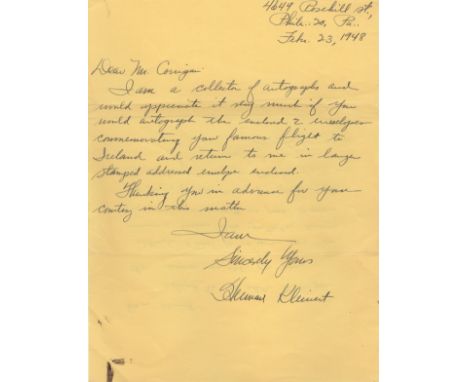 4649 Rosehill St.,
Phila. 20, Pa.
Feb. 23, 1948
Dear Mr. Corrigan:
I am a collector of autographs and
would appreciate it very much if you
would autograph the enclosed 2 envelopes
commemorating your famous flight to
Ireland and return to me in larger
stamped addressed envelope enclosed.
Thanking you in advance for your
courtesy in this matter
I am
Sincerely Yours
Herman Kleinert